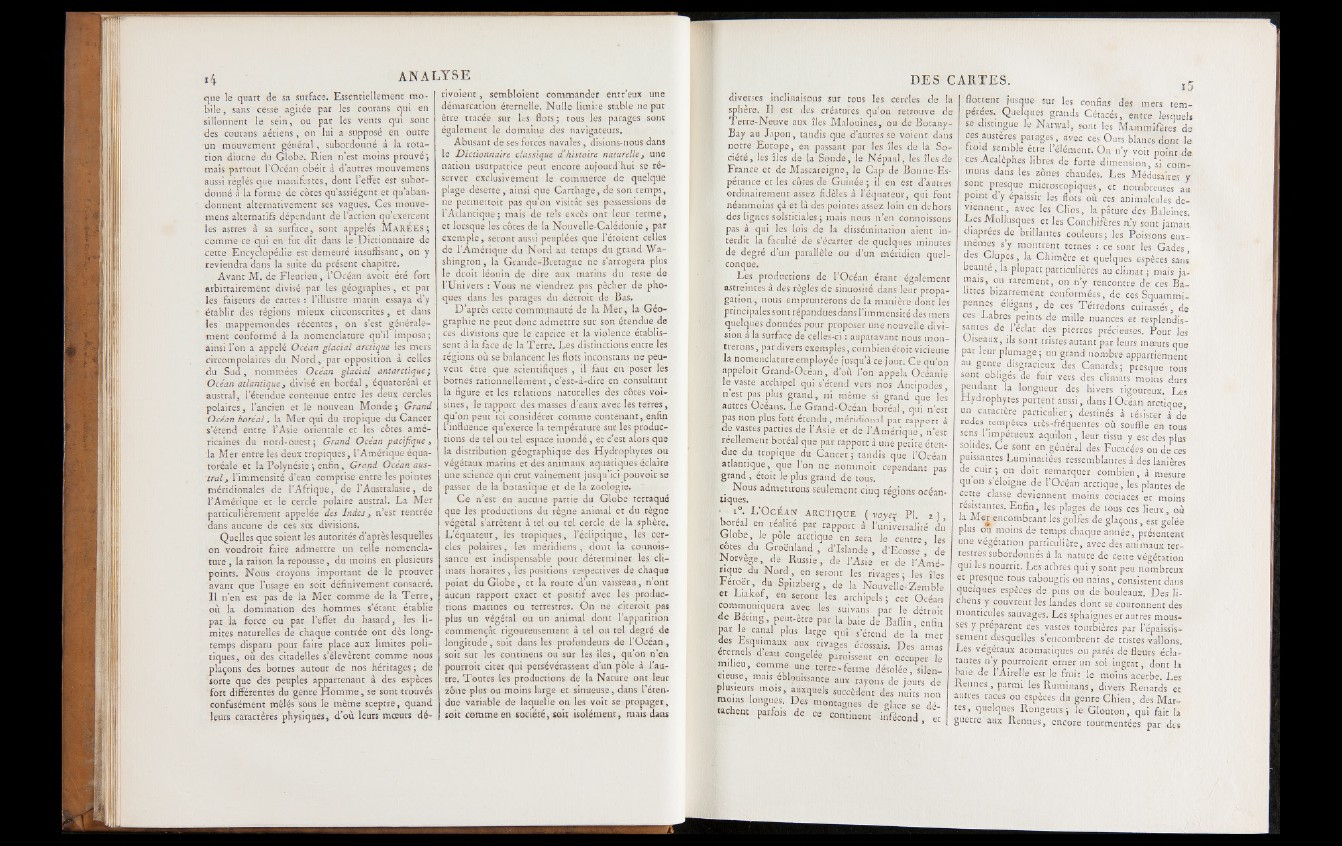 14
ANALYSE
que le quart de sa surface. Essentiellement mo-
bile, sans cesse agitée par les courans qui en
sillonnent le sein, ou par les vents qui sont
des courans aériens, on lui a supposé en outre
un mouvement général, subordonné à la rota-
tion diurne du Globe. Rien n'est moins prouvé;
mais partout l'Océan obéit à d'autres mouvemens
aussi réglés que manifestes, dont l'effet est subor-
donné à la forme de côtes qu'assiégent et qu'aban-
donnent alternativement ses vagues. Ces mouve-
mens alternatifs dépendant de l'action qu'exercent
les astres à sa surface, sont appelés MARÉES;
comme ce qui en fut dit dans le Dictionnaire de
cette Encyclopédie est demeuré insuffisant, on y
reviendra dans la suite du présent chapitre.
Avant M. de Fleurieu, l'Océan avoit été fort
arbitrairement divisé par les géographes, et par
les faiseurs de cartes: l'illustre marin essaya d'y
établir des régions mieux circonscrites, et dans
les mappemondes récentes, on s'est générale-
ment conformé à la nomenclature qu'il imposa;
ainsi l'on a appelé Océan glacial arctique les mers
circompolaires du Nord, par opposition à celles
du Sud, nommées Océan glacial antarctique;
Océan atlantique, divisé en boréal, équatoréal et
austral, l'étendue contenue entre les deux cercles
polaires, l'ancien et le nouveau Monde; Grand
Océan boréal, la Mer qui du tropique du Cancer
s'étend entre l'Asie orientale et les côtes amé-
ricaines du nord-ouest; Grand Océan pacifique,
la Mer entre les deux tropiques, l'Amérique équa-
toréale et la Polynésie; enfin, Grand Océan aus-
tral, l'immensité d'eau comprise entre les pointes
méridionales de l'Afrique, de l'Australasie, de
l'Amérique et le cercle polaire austral. La Mer
particulièrement appelée des Indes, n'est rentrée
dans aucune de ces six divisions.
Quelles que soient les autorités d'après lesquelles
on voudroit faire admettre un telle nomencla-
ture, la raison la repousse, du moins en plusieurs
points. Nous croyons important de le prouver
avant que l'usage en soit définivement consacré.
Il n'en est pas de la Mer comme de la Terre,
où la domination des hommes s'étant établie
par la force ou par l'effet du hasard, les li-
mites naturelles de chaque contrée ont dès long-
temps disparu pour faire place aux limites poli-
tiques, où des citadelles s'élevèrent comme nous
plaçons des bornes autour de nos héritages; de
sorte que des peuples appartenant à des espèces
fort différentes du genre Homme, se sont trouvés
confusément mêlés sous le même sceptre, quand
leurs caractères physiques, d'où leurs mœurs dé-
rivoient, sembloient commander entr'eux une
démarcation éternelle. Nulle limite stable ne put
être tracée sur les flots; tous les parages sont
également le domaine des navigateurs.
Abusant de ses forces navales, disions-nous dans
le Dictionnaire classique d'histoire naturelle, une
nation usurpatrice peut encore aujourd'hui se ré-
server exclusivement le commerce de quelque
plage déserte, ainsi que Carthage, de son temps,
ne permettoit pas qu'on visitât ses possessions de
l'Atlantique; mais de tels excès ont leur terme,
et lorsque les côtes de la Nouvelle-Calédonie, par
exemple, seront aussi peuplées que l'étoient celles
de l'Amérique du Nord au temps du grand Wa-
shington, la Grande-Bretagne ne s'arrogera plus
le droit léonin de dire aux marins du reste de
l'Univers: Vous ne viendrez pas pêcher de pho-
ques dans les parages du détroit de Bas.
D'après cette communauté de la Mer, la Géo-
graphie ne peut donc admettre sur son étendue de
ces divisions que le caprice et la violence établis-
sent à la face de la Terre. Les distinctions entre les
régions où se balancent les flots inconstans ne peu-
vent être que scientifiques, il faut en poser les
bornes rationnellement, c'est-à-dire en consultant
la figure et les relations naturelles des côtes voi-
sines, le rapport des masses d'eaux avec les terres,
qu'on peut ici considérer comme contenant, enfin
l'influence qu'exerce la température sur les produc-
tions de tel ou tel espace inondé, et c'est alors que
la distribution géographique des Hydrophytes ou
végétaux marins et des animaux aquatiques éclaire
une science qui crut vainement jusqu'ici pouvoir se
passer de la botanique et de la zoologie.
Ce n'est en aucune partie du Globe terraqué
que les productions du règne animal et du règne
végétal s'arrêtent à tel ou tel cercle de la sphère.
L'équateur, les tropiques, l'écliptique, les cer-
cles polaires, les méridiens, dont la connois-
sance est indispensable pour déterminer les cli-
mats horaires, les positions respectives de chaque
point du Globe, et la route d'un vaisseau, n'ont
aucun rapport exact et positif avec les produc-
tions marines ou terrestres. On ne citeroit pas
plus un végétal ou un animal dont l'apparition
commençât rigoureusement à tel ou tel degré de
longitude, soit dans les profondeurs de l'Océan,
soit sur les continens ou sur les îles, qu'on n'en
pourroit citer qui persévérassent d'un pôle à l'au-
tre. Toutes les productions de la Nature ont leur
zône plus ou moins large et sinueuse, dans l'éten-
due variable de laquelle on les voit se propager,
soit comme en société, soit isolément, mais dans
DES CARTES.
15
diverses inclinaisons sur tous les cercles de la
sphère. Il est des créatures qu'on retrouve de
Terre-Neuve aux îles Malouines, ou de Botany-
Bay au Japon, tandis que d'autres se voient dans
notre Europe, en passant par les îles de la So-
ciété, les îles de la Sonde, le Népaul, les îles de
France et de Mascareigne, le Cap de Bonne-Es-
pérance et les côtes de Guinée; il en est d'autres
ordinairement assez fidèles à l'équateur, qui font
néanmoins çà et là des pointes assez loin en dehors
des lignes solsticiales; mais nous n'en connoissons
pas à qui les lois de la dissémination aient in-
terdit la faculté de s'écarter de quelques minutes
de degré d'un parallèle ou d'un méridien quel-
conque.
Les productions de l'Océan étant également
astreintes à des règles de sinuosité dans leur propa-
gation, nous emprunterons de la manière dont les
principales sont répandues dans l'immensité des mers
quelques données pour proposer une nouvelle divi-
sion à la surface de celles-ci: auparavant nous mon-
trerons, par divers exemples, combien étoit vicieuse
la nomenclature employée jusqu'à ce jour. Ce qu'on
appeloit Grand-Océan, d'où l'on appela Océanie
le vaste archipel qui s'étend vers nos Antipodes,
n'est pas plus grand, ni même si grand que les
autres Océans. Le Grand-Océan boréal, qui n'est
pas non plus fort étendu, méridional par rapport à
de vastes parties de l'Asie et de l'Amérique, n'est
réellement boréal que par rapport à une petite éten-
due du tropique du Cancer; tandis que l'Océan
atlantique, que l'on ne nommoit cependant pas
grand, étoit le plus grand de tous.
Nous admettrons seulement cinq régions océan-
tiques.
1°. L'OCÉAN ARCTIQUE (voyez Pl. 2),
boréal en réalité par rapport à l'universalité du
Globe, le pôle arctique en sera le centre, les
côtes du Groënland, d'Islande, d'Ecosse, de
Norvège, de Russie, de l'Asie et de l'Amé-
rique du Nord, en seront les rivages; les îles
Féroër, du Spitzberg, de la Nouvelle-Zemble
et Liakof, en seront les archipels; cet Océan
communiquera avec les suivans par le détroit
de Béring, peut-être par la baie de Baffin, enfin
par le canal plus large qui s'étend de la mer
des Esquimaux aux rivages écossais. Des amas
éternels d'eau congelée paroissent en occuper le
milieu, comme une terre-ferme désolée, silen-
cieuse, mais éblouissante aux rayons de jours de
plusieurs mois, auxquels succèdent des nuits non
moins longues. Des montagnes de glace se dé-
tachent parfois de ce continent infécond, et
flottent jusque sur les confins des mers tem-
pérées. Quelques grands Cétacés, entre lesquels
se distingue le Narwal, sont les Mammifères de
ces austères parages, avec ces Ours blancs dont le
froid semble être l'élément. On n'y voit point de
ces Acalèphes libres de forte dimension, si com-
muns dans les zônes chaudes. Les Médusaires y
sont presque microscopiques, et nombreuses au
point d'y épaissir les flots où ces animalcules de-
viennent, avec les Clios, la pâture des Baleines.
Les Mollusques et les Conchifères n'y sont jamais
diaprées de brillantes couleurs; les Poissons eux-
mêmes s'y montrent ternes: ce sont les Gades,
des Clupes, la Chimère et quelques espèces sans
beauté, la plupart particulières au climat; mais ja-
mais, ou rarement, on n'y rencontre de ces Ba-
listes bizarrement conformées, de ces Squammi-
pennes élégans, de ces Tétredons cuirassés, de
ces Labres peints de mille nuances et resplendis-
santes de l'éclat des pierres précieuses. Pour les
Oiseaux, ils sont tristes autant par leurs mœurs que
par leur plumage; un grand nombre appartiennent
au genre disgracieux des Canards; presque tous
sont obligés de fuir vers des climats moins durs
pendant la longueur des hivers rigoureux. Les
Hydrophytes portent aussi, dans l'Océan arctique,
un caractère particulier; destinés à résister à de
rudes tempêtes très-fréquentes où souffle en tous
sens l'impétueux aquilon, leur tissu y est des plus
solides. Ce sont en général des Fucacées ou de ces
puissantes Luminariées ressemblantes à des lanières
de cuir; on doit remarquer combien, à mesure
qu'on s'éloigne de l'Océan arctique, les plantes de
cette classe deviennent moins coriaces et moins
résistantes. Enfin, les plages de tous ces lieux, où
la Mer encombrant les golfes de glaçons, est gelée
plus ou moins de temps chaque année, présentent
une végétation particulière, avec des animaux ter-
restres subordonnés à la nature de cette végétation
qui les nourrit. Les arbres qui y sont peu nombreux
et presque tous rabougris ou nains, consistent dans
quelques espèces de pins ou de bouleaux. Des li-
chens y couvrent les landes dont se couronnent des
monticules sauvages. Les sphaignes et autres mous-
ses y préparent ces vastes tourbières par l'épaissis-
sement desquelles s'encombrent de tristes vallons.
Les végétaux aromatiques ou parés de fleurs écla-
tantes n'y pourroient orner un sol ingrat, dont la
baie de l'Airelle est le fruit le moins acerbe. Les
Rennes, parmi les Ruminans, divers Renards et
autres races ou espèces du genre Chien, des Mar-
tes, quelques Rongeurs; le Glouton, qui fait la
guerre aux Rennes, encore tourmentées par des